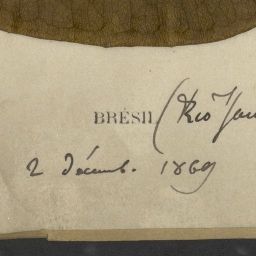 BRÉSIL (Rio Jan
2 décemb. 1869